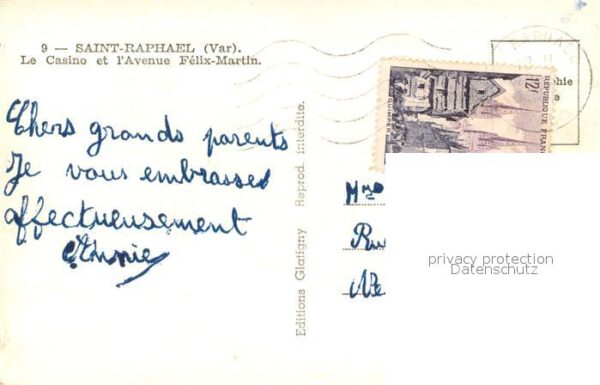 9 — SAINT-RAPHAEL (Var).
Le Casino et l'Avenue Félix-Martin.
Chers grands parents
Je vous embrasses
affectueusement
Annie
Editions Glatigny Reprod. interdite.
12F
REPUBLIQUE FRAN
QUIMPER
Mme
privacy protection
Datenschutz